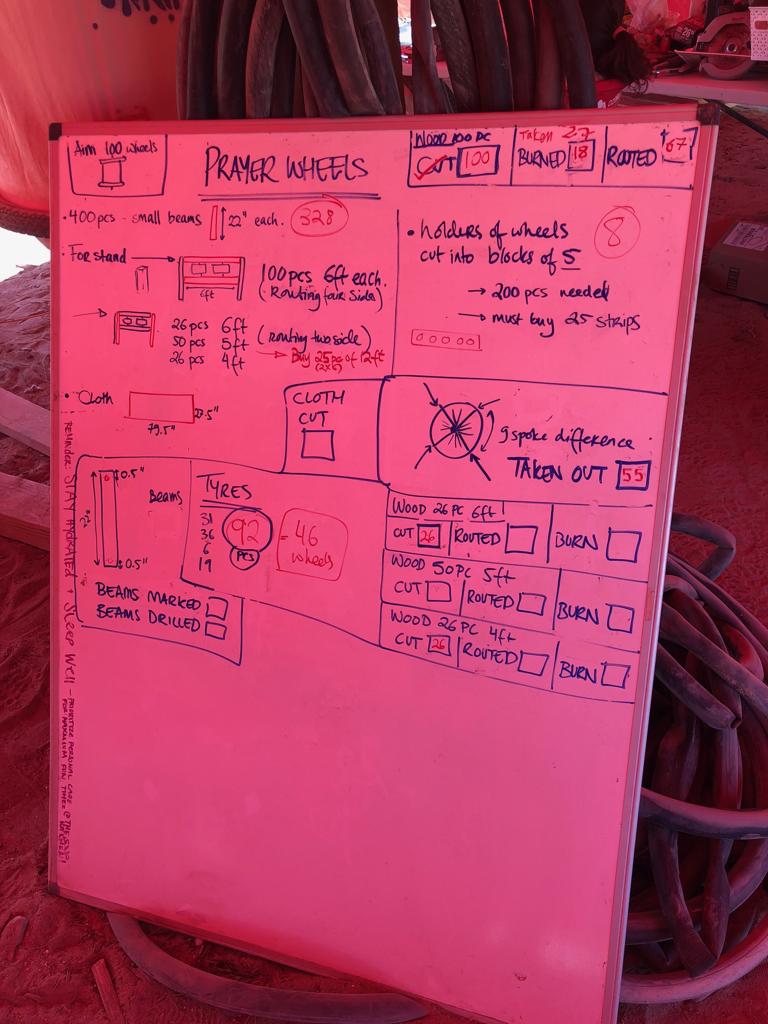 Aim 100 wheels
PRAYER WHEELS
WOOD 100 PC
CUT 100
Taken 27
BURNED 18
ROUTED 67
• 400 pcs - small beams 22" each. 328
• For stand
6ft
100 pcs 6ft each.
(Routing four side)
26 pcs 6ft
50 pcs 5ft (routing two side)
26 pcs 4ft → Buy 25 pc of 12ft
(2x6)
• holders of wheels 8
cut into blocks of 5
→ 200 pcs needed
→ must buy 25 strips
• Cloth
27.5"
79.5"
CLOTH
CUT
9 spoke difference
TAKEN OUT 55
0.5"
Beams
22"
0.5"
BEAMS MARKED
BEAMS DRILLED
TYRES
31
36
6
19
92
PCS
= 46
wheels
WOOD 26 PC 6ft
CUT 26 ROUTED BURN
WOOD 50 PC 5ft
CUT ROUTED BURN
WOOD 26 PC 4ft
CUT 26 ROUTED BURN
REMINDER: STAY HYDRATED + SLEEP WELL - PRIORITIZE PERSONAL CARE